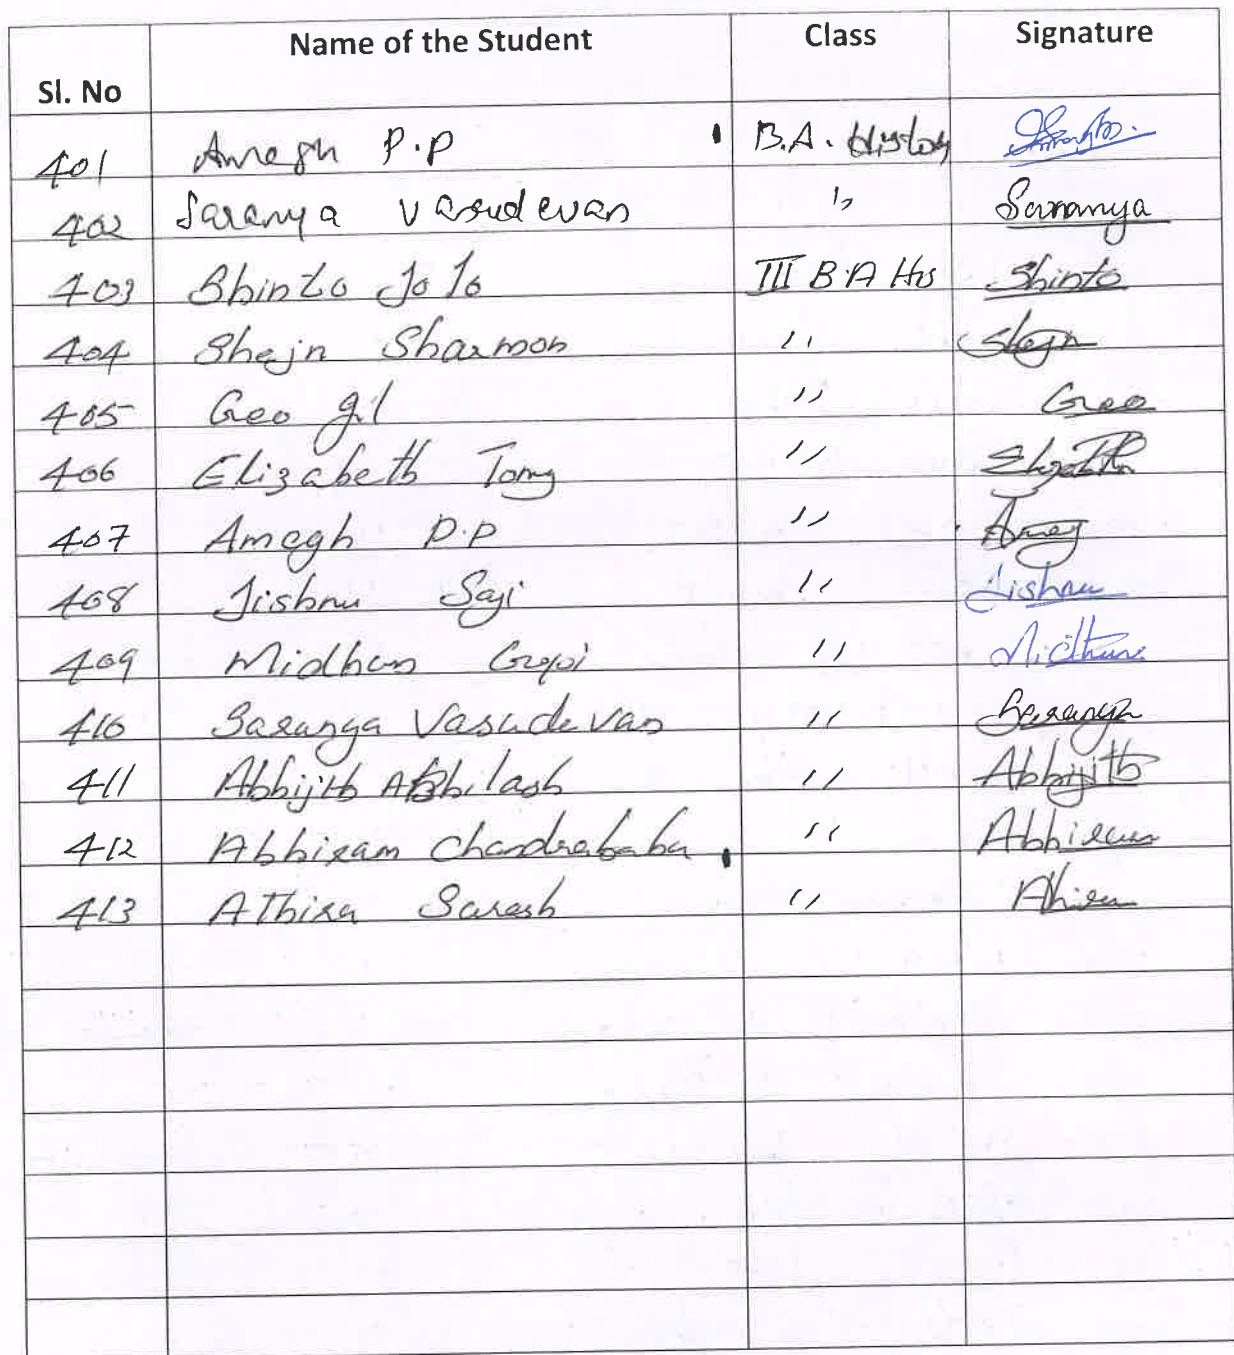 Sl. No Name of the Student Class Signature
401 Amegh P.P B.A. History
402 Saranya Vasudevan " Saranya
403 Shinto JoJo III B.A His Shinto
404 Shejn Sharmon " Shejn
405 Geo gil " Geo
406 Elizabeth Tomy " Elizabeth
407 Amegh P.P " Ameg
408 Jishnu Saji " Jishnu
409 Midhun Gopi " Midhun
410 Saranya Vasudevan " Saranya
411 Abhijith Abhilash " Abhijith
412 Abhiram Chandrababu " Abhiram
413 Athira Suresh "